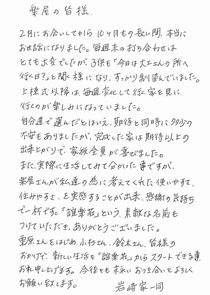 楽屋の皆様
2月にお会いしてから10ヶ月もの長い間、本当に
お世話になりました。毎週末の打ち合わせは
とても大変でしたが、子供も「今日は大工さんの所へ
行く日?」と聞く様になり、すっかり馴染んでいました。
上棟式以降は、毎週変化して行く家を見に
行くのが楽しみになっていました。
自分達で選んだとはいえ、期待と同時に多少の
不安もありましたが、完成した家は期待以上の
出来上がりで、家族全員が喜びました。
また、実際に生活してみて分かった事ですが、
楽屋さんが私達の為に考えてくれた使いやすさ、
住みやすさ、を実感することが出来、感謝の気持ち
で一杯です。という素敵な名前も
つけていただき、ありがとうございました。
栗原さんをはじめ、小杉さん、鈴木さん、皆様の
おかげで新しい生活をからスタートできる事
お礼申し上げます。今後とも末永いお付き合いをよろしく
お願い致します。
岩崎家一同